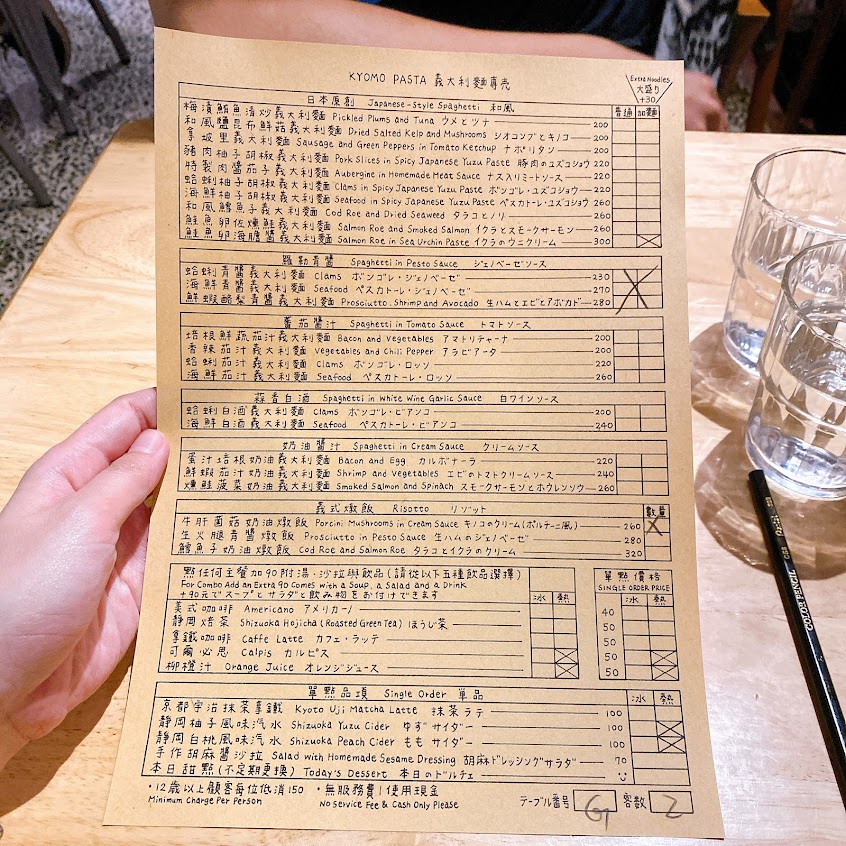 KYOMO PASTA 義大利麵專売
Extra Noodles
大盛り
+30
日本原創 Japanese-Style Spaghetti 和風
普通 加麵
梅漬鮪魚清炒義大利麵 Pickled Plums and Tuna ウメとツナ 200
和風鹽昆布鮮菇義大利麵 Dried Salted Kelp and Mushrooms シオコンブとキノコ 200
拿坡里義大利麵 Sausage and Green Peppers in Tomato Ketchup ナポリタン 200
豬肉柚子胡椒義大利麵 Pork Slices in Spicy Japanese Yuzu Paste 豚肉のユズコショウ 220
特製肉醬茄子義大利麵 Aubergine in Homemade Meat Sauce ナス入りミートソース 220
蛤蜊柚子胡椒義大利麵 Clams in Spicy Japanese Yuzu Paste ボンゴレ・ユズコショウ 220
海鮮柚子胡椒義大利麵 Seafood in Spicy Japanese Yuzu Paste ペスカトーレ・ユズコショウ 260
和風鱈魚子義大利麵 Cod Roe and Dried Seaweed タラコとノリ 260
鮭魚卵佐燻鮭義大利麵 Salmon Roe and Smoked Salmon イクラとスモークサーモン 260
鮭魚卵海膽醬義大利麵 Salmon Roe in Sea Urchin Paste イクラのウニクリーム 300
羅勒青醬 Spaghetti in Pesto Sauce ジェノベーゼソース
蛤蜊青醬義大利麵 Clams ボンゴレ・ジェノベーゼ 230
海鮮青醬義大利麵 Seafood ペスカトーレ・ジェノベーゼ 270
鮮蝦酪梨青醬義大利麵 Prosciutto, Shrimp and Avocado 生ハムとエビとアボカド 280
蕃茄醬汁 Spaghetti in Tomato Sauce トマトソース
培根鮮蔬茄汁義大利麵 Bacon and Vegetables アマトリチャーナ 200
香辣茄汁義大利麵 Vegetables and Chili Pepper アラビアータ 200
蛤蜊茄汁義大利麵 Clams ボンゴレ・ロッソ 220
海鮮茄汁義大利麵 Seafood ペスカトーレ・ロッソ 260
蒜香白酒 Spaghetti in White Wine Garlic Sauce 白ワインソース
蛤蜊白酒義大利麵 Clams ボンゴレ・ビアンコ 200
海鮮白酒義大利麵 Seafood ペスカトーレ・ビアンコ 240
奶油醬汁 Spaghetti in Cream Sauce クリームソース
蛋汁培根奶油義大利麵 Bacon and Egg カルボナーラ 220
鮮蝦茄汁奶油義大利麵 Shrimp and Vegetables エビのトマトクリームソース 240
燻鮭菠菜奶油義大利麵 Smoked Salmon and Spinach スモークサーモンとホウレンソウ 260
義式燉飯 Risotto リゾット 數量
牛肝菌菇奶油燉飯 Porcini Mushrooms in Cream Sauce キノコのクリーム(ポルチーニ風) 260
生火腿青醬燉飯 Prosciutto in Pesto Sauce 生ハムのジェノベーゼ 280
鱈魚子奶油燉飯 Cod Roe and Salmon Roe タラコとイクラのクリーム 320
點任何主餐加90附湯、沙拉與飲品(請從以下五種飲品選擇)
For Combo Add an Extra 90 Comes with a Soup, a Salad and a Drink
+90元でスープとサラダと飲み物をお付けできます
冰 熱
單點價格
SINGLE ORDER PRICE
冰 熱
美式咖啡 Americano アメリカーノ 40
靜岡焙茶 Shizuoka Hojicha (Roasted Green Tea) ほうじ茶 50
拿鐵咖啡 Caffe Latte カフェ・ラッテ 50
可爾必思 Calpis カルピス 50
柳橙汁 Orange Juice オレンジジュース 50
單點品項 Single Order 單品 冰 熱
京都宇治抹茶拿鐵 Kyoto Uji Matcha Latte 抹茶ラテ 100
靜岡柚子風味汽水 Shizuoka Yuzu Cider ゆずサイダー 100
靜岡白桃風味汽水 Shizuoka Peach Cider ももサイダー 100
手作胡麻醬沙拉 Salad with Homemade Sesame Dressing 胡麻ドレッシングサラダ 70
本日甜點(不定期更換) Today's Dessert 本日のドルチェ
•12歲以上顧客每位低消150 •無服務費|使用現金
Minimum Charge Per Person No Service Fee & Cash Only Please
テーブル番号 G 客数 2
COLOR PENCIL